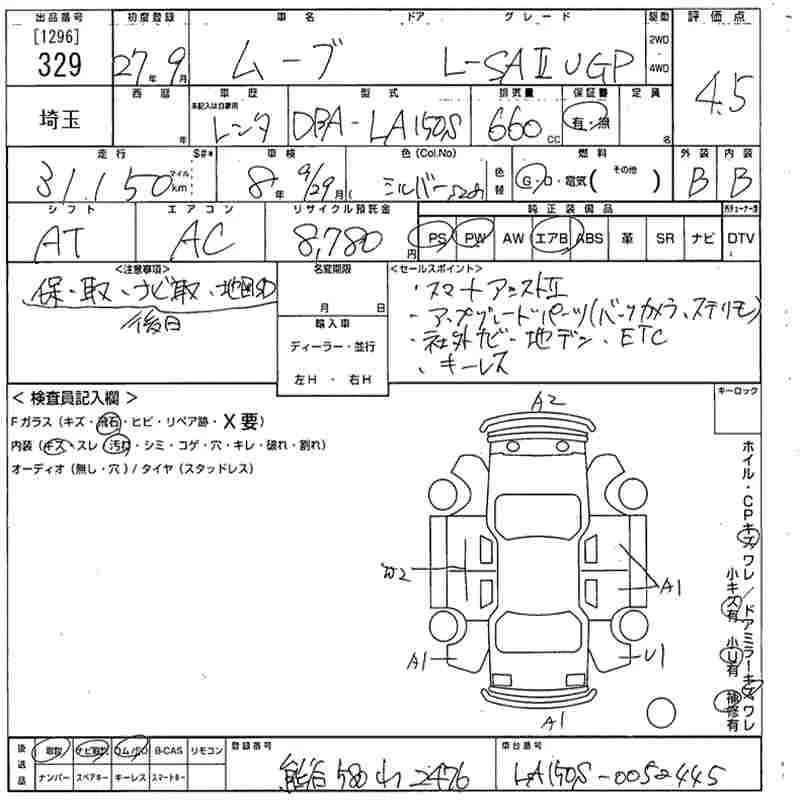 出品番号 初度登録 車名 ドア グレード 駆動 評価点
[1296]
329 27年9月 ムーブ L-SAⅡ UGP 2WD・4WD 4.5
埼玉 西暦 車歴 型式 排気量 保証書 定員
未記入は自家用
年 レンタ DBA-LA150S 660cc 有・無 名
走行 S#* 車検 色(Col.No) 燃料 外装 内装
31,150 マイル km 8年9/29月( シルバーS28 色替 G・D・電気( その他 ) B B
シフト エアコン リサイクル預託金 純正装備品
AT AC 8,780円 PS PW AW エアB ABS 革 SR ナビ DTV
<注意事項> 名変期限 <セールスポイント>
保・取、ナビ取、地図
後日
月 日
輸入車
ディーラー・並行
左H・右H
・スマートアシストⅡ
・アップグレードパーツ(バックカメラ、ステリモ)
・社外ナビ・地デジ・ETC
・キーレス
<検査員記入欄> キーロック
Fガラス(キズ・飛石・ヒビ・リペア跡・X要)
内装(キズ・スレ・汚れ・シミ・コゲ・穴・キレ・破れ・割れ)
オーディオ(無し・穴)/タイヤ(スタッドレス)
A2
W2
A1
A1
U1
A1
ホイル・CPキズ、ワレ/ドアミラーキズ、ワレ
小キズ有 小U有 補修有
後送品 取説 ナビ取説 コム/SD B-CAS リモコン 登録番号 車台番号
ナンバー スペアキー キーレス スマートキー
熊谷 580 わ 2476 LA150S-0052445